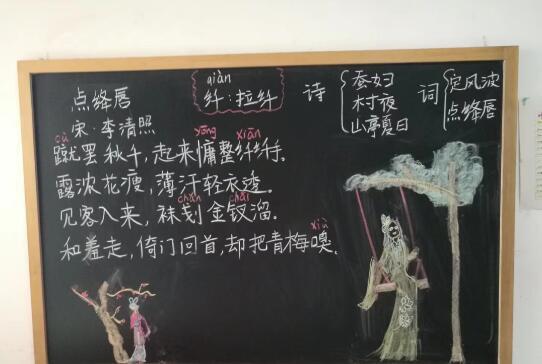 qiàn
点绛唇
纤:拉纤
诗
蚕妇
村夜
山亭夏日
词
定风波
点绛唇
宋·李清照
cù yōng xiān
蹴罢秋千,起来慵整纤纤手。
露浓花瘦,薄汗轻衣透。
chǎn chāi
见客入来,袜刬金钗溜。
xiù
和羞走,倚门回首,却把青梅嗅。